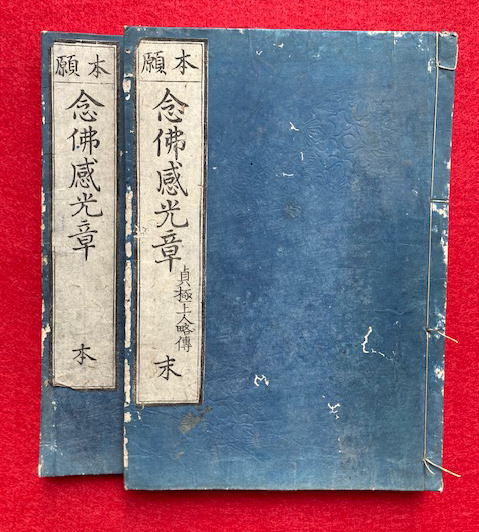 本願
念佛感光章
貞極上人略傳
末
本願
念佛感光章
本